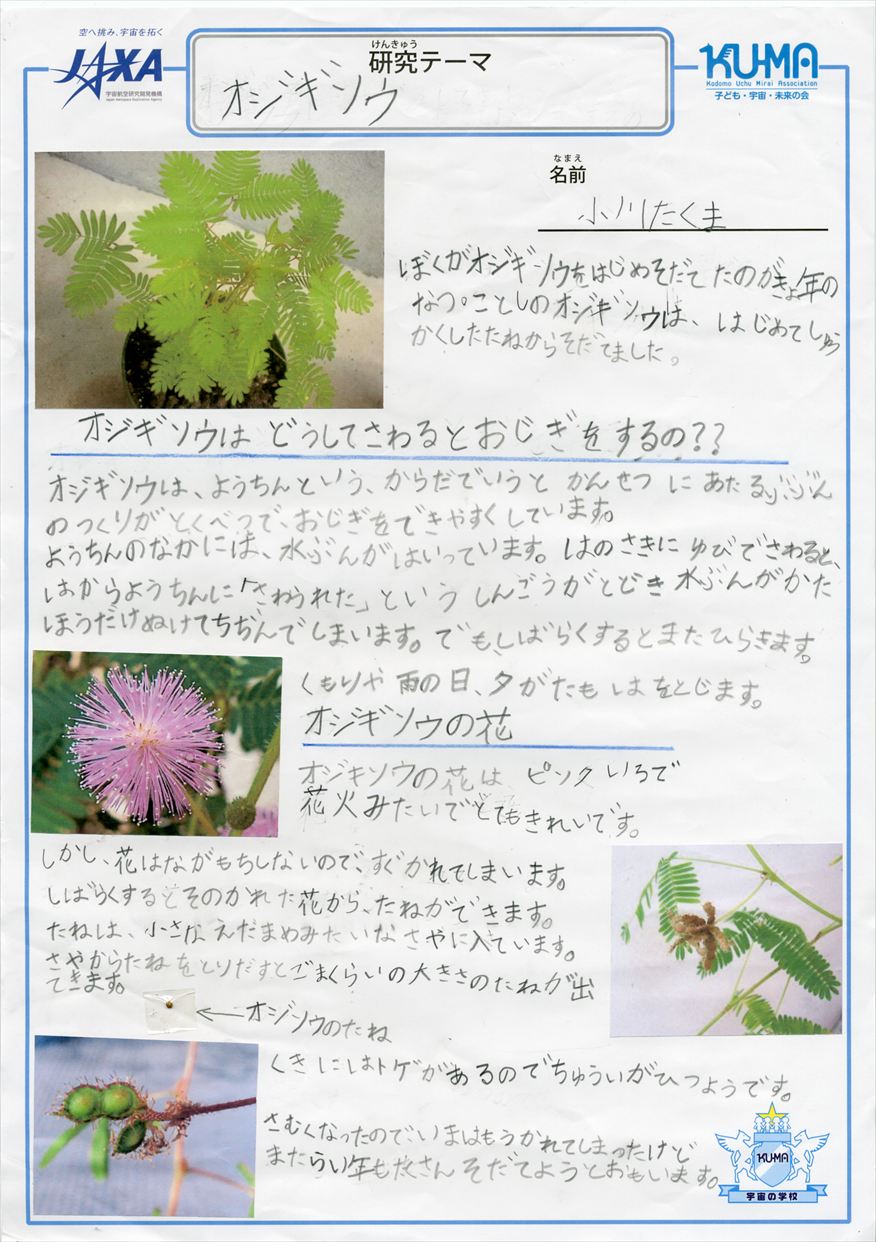 空へ挑み、宇宙を拓く
JAXA
宇宙航空研究開発機構
Japan Aerospace Exploration Agency
けんきゅう
研究テーマ
オジギソウ
KU-MA
Kodomo Uchu Mirai Association
子ども・宇宙・未来の会
なまえ
名前
小川たくま
ぼくがオジギソウをはじめそだてたのがきょ年の
なつ。ことしのオジギソウは、はじめてしゅう
かくしたたねからそだてました。
オジギソウはどうしてさわるとおじぎをするの??
オジギソウは、ようちんという、からだでいうとかんせつにあたるぶぶん
のつくりがとくべつで、おじぎをできやすくしています。
ようちんのなかには、水ぶんがはいっています。はのさきにゆびでさわると、
はからようちんに「さわられた」というしんごうがとどき水ぶんがかた
ほうだけぬけてちぢんでしまいます。でも、しばらくするとまたひらきます。
くもりや雨の日、夕がたもはをとじます。
オジギソウの花
オジキソウの花はピンクいろで
花火みたいでとてもきれいです。
しかし、花はながもちしないので、すぐかれてしまいます。
しばらくするとそのかれた花から、たねができます。
たねは、小さなえだまめみたいなさやに入ています。
さやからたねをとりだすとごまくらいの大きさのたねが出
てきます。
←オジソウのたね
くきにはトゲがあるのでちゅういがひつようです。
さむくなったので、いまはもうかれてしまったけど
またらい年もたくさんそだてようとおもいます。
KU-MA
宇宙の学校